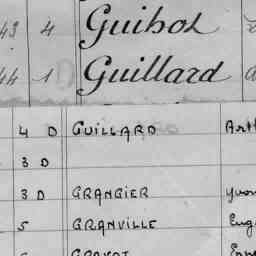 43 4 Guibol
44 1 D Guillard
4 D GUILLARD Art
3 D
3 D GRANGIER Yvon
5 GRANVILLE Eug